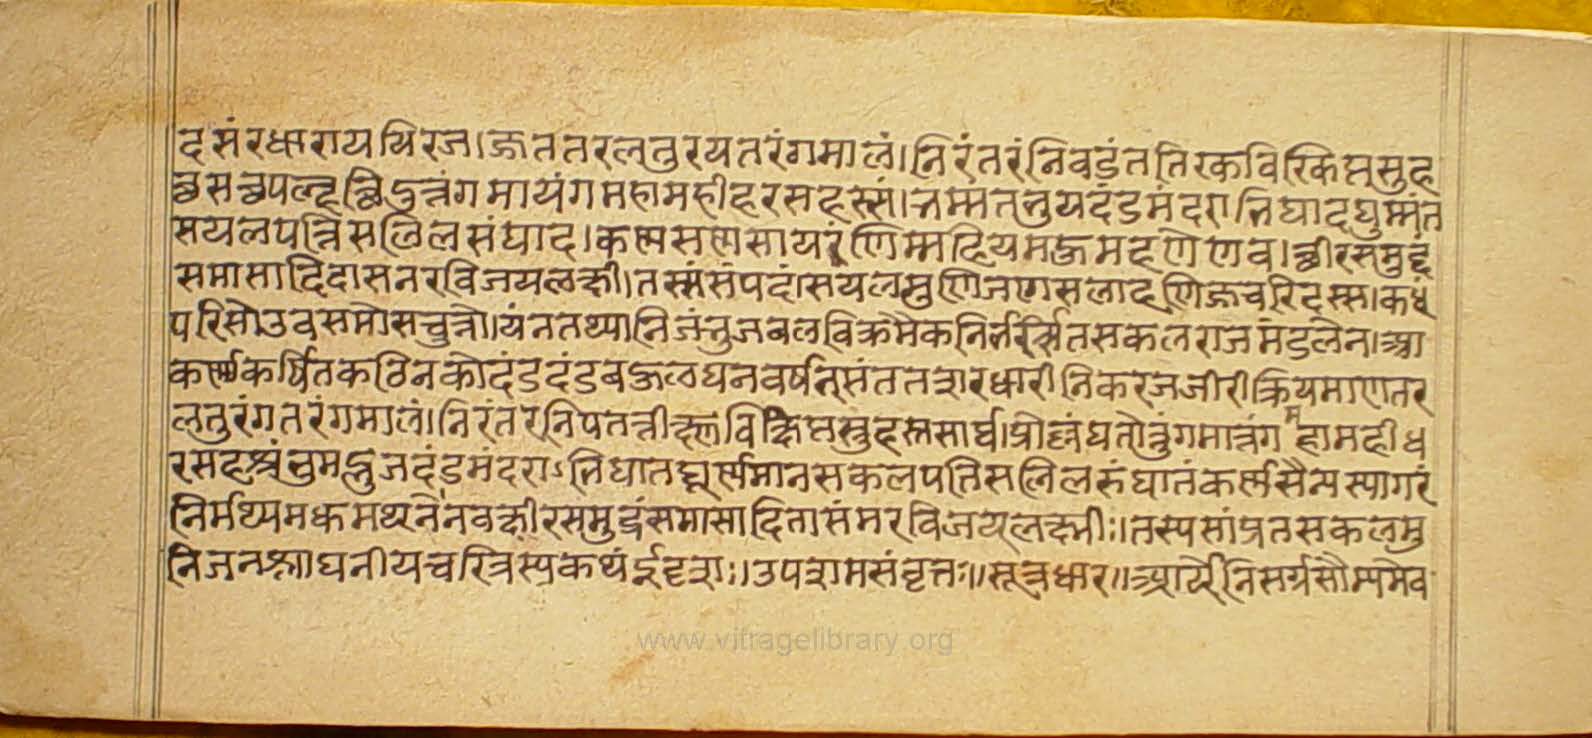 दसंरधाराययिरज।ऊततरलतुरयतरंगमालं।निरंतरंनिवडंततिरकविरकिप्तसुह
छसछपल्हछिउत्तंगमायंगमहामहीहरसहस्सं।तम्मतत्तुयदंडमंदरानिघादघुम्मंत
सयलपत्तिसलिलसंघाद।कणसणसायरंणिम्महियमऊमहणेणव।छीरसमुद्द
समासादिदासनरविजयलक्षी।तस्ससंपदं।सयलसुणिजणसलाहणिऊचरिदस्स।कधं
परिसोउवसमोसवुत्तो।यंनतथ्थानिजंनुजबलविक्रमैकनिर्भर्त्सितसकलराजमंडलेन।आ
कर्णकर्षितकठिनकोदंडदंडबऊलघनवर्षत्संततशरधारीनिकरजर्जीरीक्रियमाणतर
लतुरंगतरंगमालं।निरंतरनिपतत्तीक्ष्णविक्षिप्तसुहस्तसार्घ।प्रोल्लंघतोत्तुंगमातंगमहामहीध
रसहश्रंनुमद्भुजदंडमंदराऽनिघातघूर्णमानसकलपतिसलिलसंघातंकर्णसैन्यस्पागरं
निर्मथ्यमधमथनेनवक्षीरसमुद्रंसमासादितासंमरविजयलक्ष्मीः।तस्पसांप्रतसकलमु
निजनश्लाघनीयचरित्रस्पकथंईदृशः।।उपशमसंवृत्तः।।सूत्रधार।।आर्ये।निसर्गसौम्पमेव
www.vitragelibrary.org